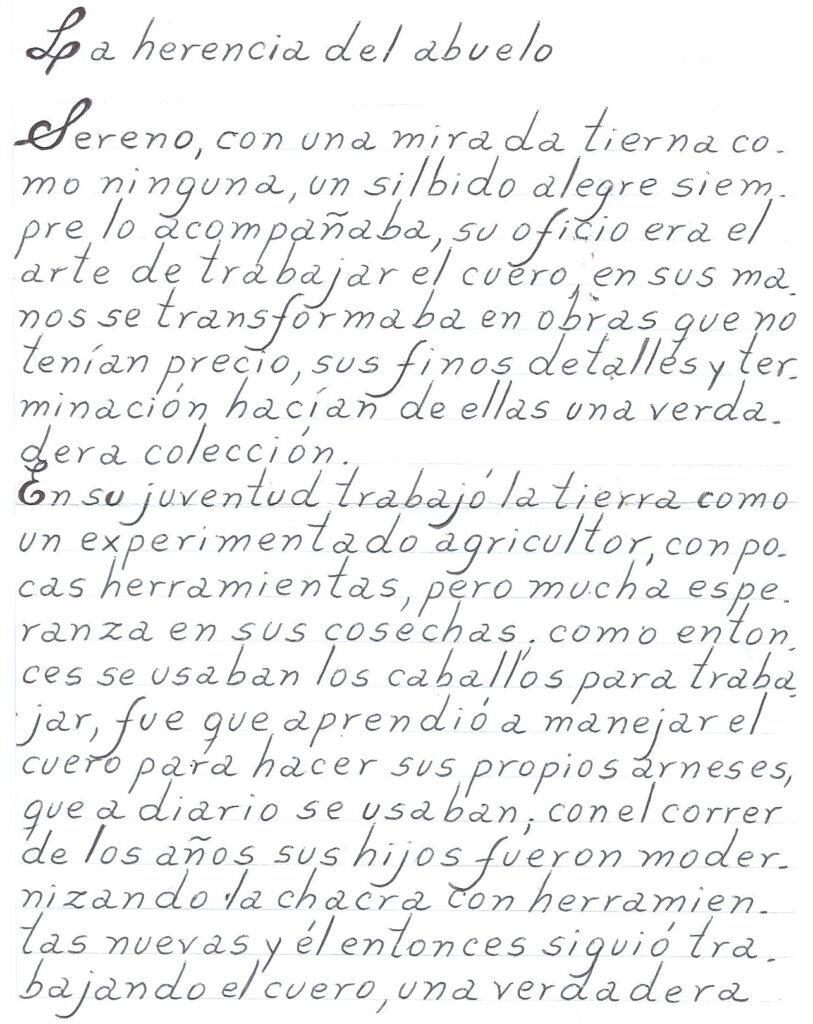 La herencia del abuelo
Sereno, con una mirada tierna co-
mo ninguna, un silbido alegre siem-
pre lo acompañaba, su oficio era el
arte de trabajar el cuero, en sus ma-
nos se transformaba en obras que no
tenían precio, sus finos detalles y ter-
minación hacían de ellas una verda-
dera colección.
En su juventud trabajó la tierra como
un experimentado agricultor, con po-
cas herramientas, pero mucha espe-
ranza en sus cosechas; como enton-
ces se usaban los caballos para traba-
jar, fue que aprendió a manejar el
cuero para hacer sus propios arneses,
que a diario se usaban; con el correr
de los años sus hijos fueron moder-
nizando la chacra con herramien-
tas nuevas y él entonces siguió tra-
bajando el cuero, una verdadera